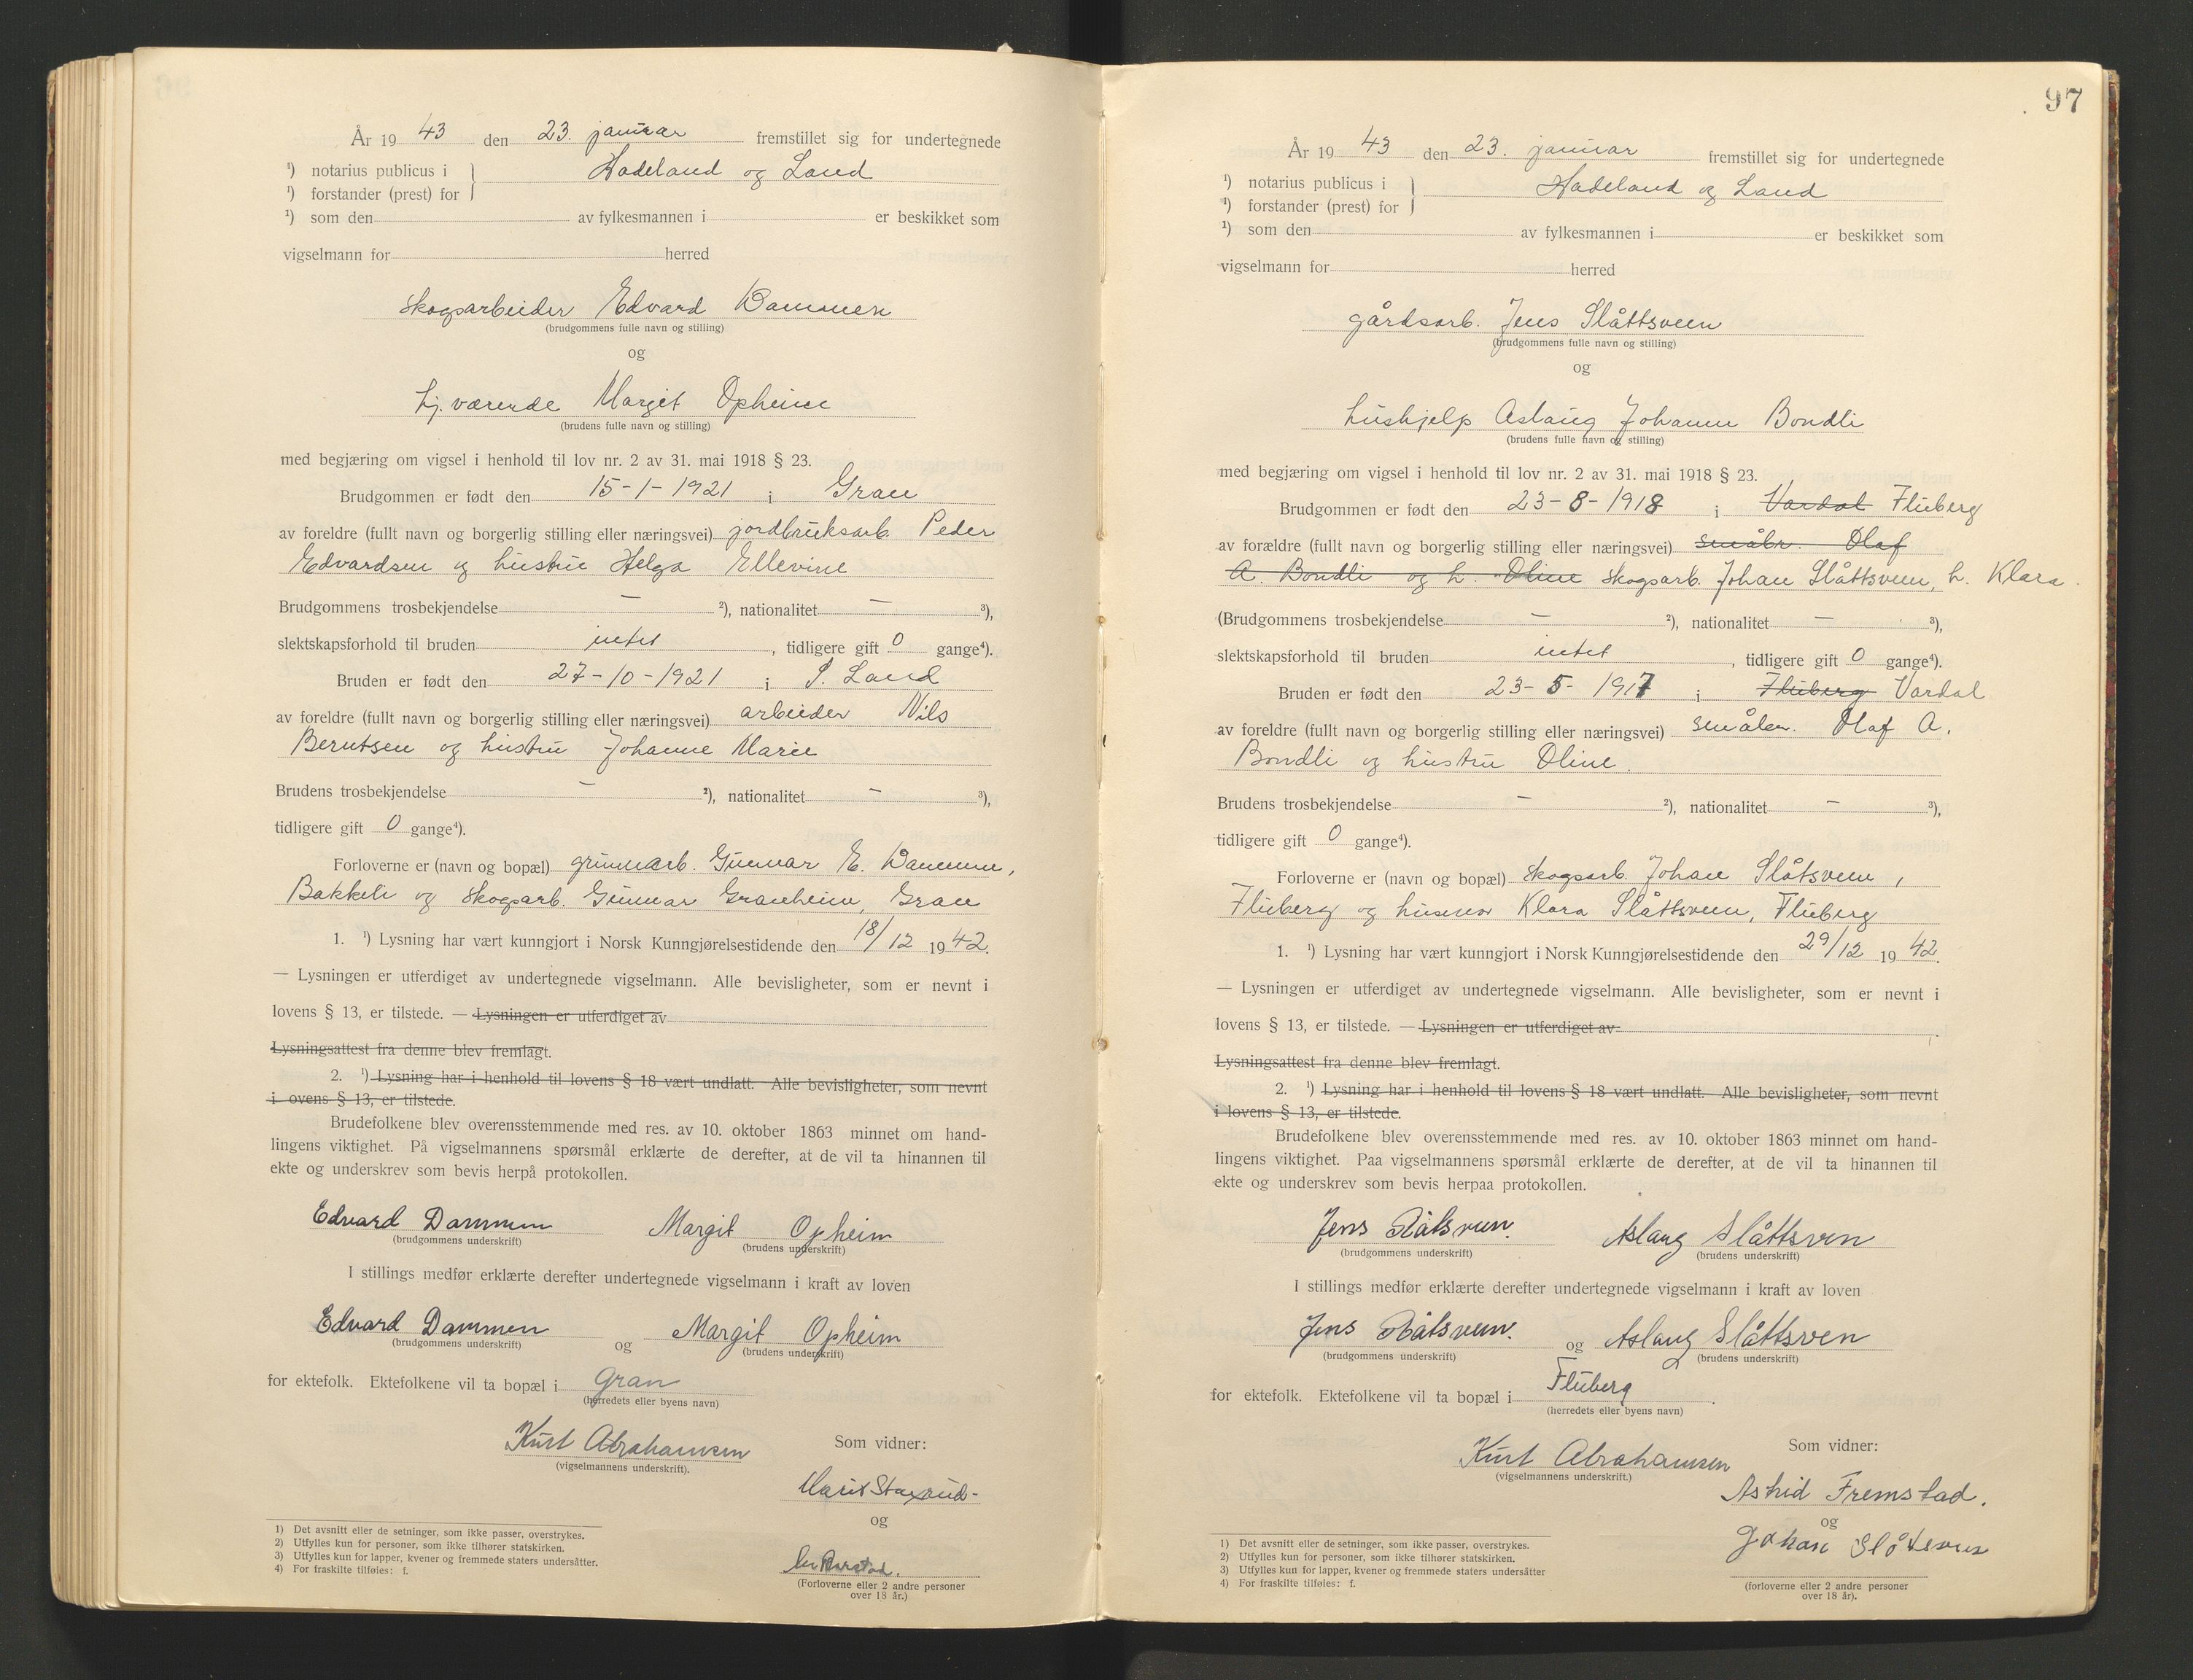 År 19 43 den 23. januar fremstillet sig for undertegnede
¹) notarius publicus i } Hadeland og Land
¹) forstander (prest) for
¹) som den av fylkesmannen i er beskikket som
vigselmann for herred
skogsarbeider Edvard Dammen
(brudgommens fulle navn og stilling)
og
hj. værende Margit Opheim
(brudens fulle navn og stilling)
med begjæring om vigsel i henhold til lov nr. 2 av 31. mai 1918 § 23.
Brudgommen er født den 15-1-1921 i Gran
av foreldre (fullt navn og borgerlig stilling eller næringsvei) jordbruksarb. Peder
Edvardsen og hustru Helga Ellevine
Brudgommens trosbekjendelse — ²), nationalitet — ³),
slektskapsforhold til bruden intet, tidligere gift 0 gange⁴).
Bruden er født den 27-10-1921 i S. Land
av foreldre (fullt navn og borgerlig stilling eller næringsvei) arbeider Nils
Berntsen og hustru Johanne Marie
Brudens trosbekjendelse — ²), nationalitet — ³),
tidligere gift 0 gange⁴).
Forloverne er (navn og bopæl) grunnarb. Gunnar E. Dammen,
Bakkeli og skogsarb. Gunnar Granheim, Gran
1. ¹) Lysning har vært kunngjort i Norsk Kunngjørelsestidende den 18/12 19 42.
— Lysningen er utferdiget av undertegnede vigselmann. Alle bevisligheter, som er nevnt i
lovens § 13, er tilstede. — Lysningen er utferdiget av
Lysningsattest fra denne blev fremlagt.
2. ¹) Lysning har i henhold til lovens § 18 vært undlatt. Alle bevisligheter, som nevnt
i ovens § 13, er tilstede.
Brudefolkene blev overensstemmende med res. av 10. oktober 1863 minnet om hand-
lingens viktighet. På vigselmannens spørsmål erklærte de derefter, at de vil ta hinannen til
ekte og underskrev som bevis herpå protokollen.
Edvard Dammen Margit Opheim
(brudgommens underskrift) (brudens underskrift)
I stillings medfør erklærte derefter undertegnede vigselmann i kraft av loven
Edvard Dammen og Margit Opheim
(brudgommens underskrift) (brudens underskrift)
for ektefolk. Ektefolkene vil ta bopæl i Gran
(herredets eller byens navn)
Kurt Abrahamsen Som vidner:
(vigselmannens underskrift).
Marit Staxrud
og
(Forloverne eller 2 andre personer
over 18 år.)
1) Det avsnitt eller de setninger, som ikke passer, overstrykes.
2) Utfylles kun for personer, som ikke tilhører statskirken.
3) Utfylles kun for lapper, kvener og fremmede staters undersåtter.
4) For fraskilte tilføies: f.
97
År 19 43 den 23. januar fremstillet sig for undertegnede
¹) notarius publicus i } Hadeland og Land
¹) forstander (prest) for
¹) som den av fylkesmannen i er beskikket som
vigselmann for herred
gårdsarb. Jens Slåttsveen
(brudgommens fulle navn og stilling)
og
hushjelp Aslaug Johanne Bondli
(brudens fulle navn og stilling)
med begjæring om vigsel i henhold til lov nr. 2 av 31. mai 1918 § 23.
Brudgommen er født den 23-8-1918 i Vardal Fluberg
av forældre (fullt navn og borgerlig stilling eller næringsvei) småbr. Olaf
A. Bondli og h. Oline skogsarb. Johan Slåttsveen, h. Klara.
(Brudgommens trosbekjendelse — ²), nationalitet — ³),
slektskapsforhold til bruden intet, tidligere gift 0 gange⁴).
Bruden er født den 23-5-1917 i Fluberg Vardal
av foreldre (fullt navn og borgerlig stilling eller næringsvei) småbr. Olaf A.
Bondli og hustru Oline.
Brudens trosbekjendelse — ²), nationalitet — ³),
tidligere gift 0 gange⁴).
Forloverne er (navn og bopæl) skogsarb. Johan Slåtsveen,
Fluberg og husmor Klara Slåttsveen, Fluberg
1. ¹) Lysning har vært kunngjort i Norsk Kunngjørelsestidende den 29/12 19 42.
— Lysningen er utferdiget av undertegnede vigselmann. Alle bevisligheter, som er nevnt i
lovens § 13, er tilstede. — Lysningen er utferdiget av
Lysningsattest fra denne blev fremlagt.
2. ¹) Lysning har i henhold til lovens § 18 vært undlatt. Alle bevisligheter, som nevnt
i lovens § 13, er tilstede.
Brudefolkene blev overensstemmende med res. av 10. oktober 1863 minnet om hand-
lingens viktighet. Paa vigselmannens spørsmål erklærte de derefter, at de vil ta hinannen til
ekte og underskrev som bevis herpaa protokollen.
Jens Slåtsveen. Aslaug Slåttsven
(brudgommens underskrift) (brudens underskrift)
I stillings medfør erklærte derefter undertegnede vigselmann i kraft av loven
Jens Slåtsveen. og Aslaug Slåttsven
(brudgommens underskrift) (brudens underskrift)
for ektefolk. Ektefolkene vil ta bopæl i Fluberg.
(herredets eller byens navn)
Kurt Abrahamsen Som vidner:
(vigselmannens underskrift.)
Astrid Fremstad.
og
Johan Slåtsveen
(forloverne eller 2 andre personer
over 18 år).
1) Det avsnitt eller de setninger, som ikke passer, overstrykes.
2) Utfylles kun for personer, som ikke tilhører statskirken.
3) Utfylles kun for lapper, kvener og fremmede staters undersåtter
4) For fraskilte tilføies: f.